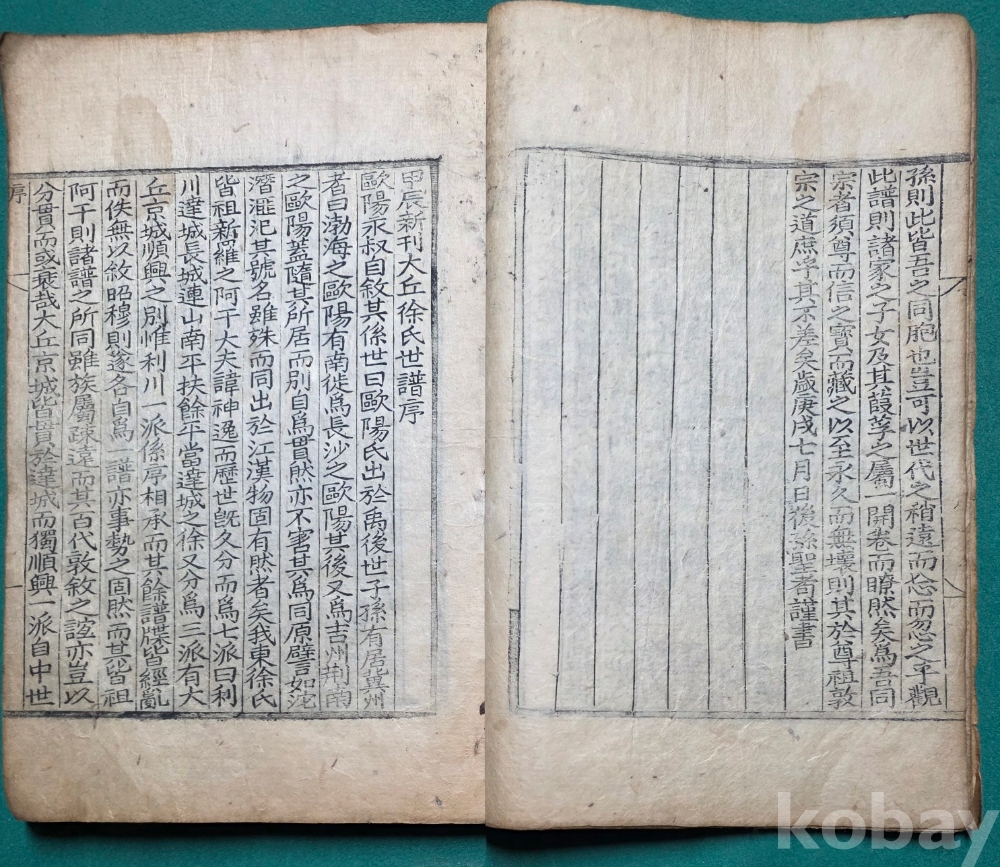 孫則此皆吾之同胞也豈可以世代之稍遠而忘而忽之乎觀
此譜則諸家之子女及其葭莩之屬一開卷而瞭然矣爲吾同
宗者須尊而信之寶而藏之以至永久而無壞則其於尊祖敦
宗之道庶乎其不差矣歲庚戌七月日後孫聖耇謹書
甲辰新刊大丘徐氏世譜序
歐陽永叔自敘其係世曰歐陽氏出於禹後世子孫有居冀州
者曰渤海之歐陽有南徙爲長沙之歐陽其後又爲吉州荆南
之歐陽蓋隨其所居而別自爲貫然亦不害其爲同原譬言如沱
潛漚汜其號名雖殊而同出於江漢物固有然者矣我東徐氏
皆祖新羅之阿干大夫諱神逸而歷世旣久分而爲七派曰利
川達城長城連山南平扶餘平當達城之徐又分爲三派有大
丘京城順興之別惟利川一派係序相承而其餘譜牒皆經亂
而佚無以敘昭穆則遂各自爲一譜亦事勢之固然而其皆祖
阿干則諸譜之所同雖族屬疎遠而其百代敦敘之誼亦豈以
分貫而或衰哉大丘京城皆貫於達城而獨順興一派自中世
序
kobay